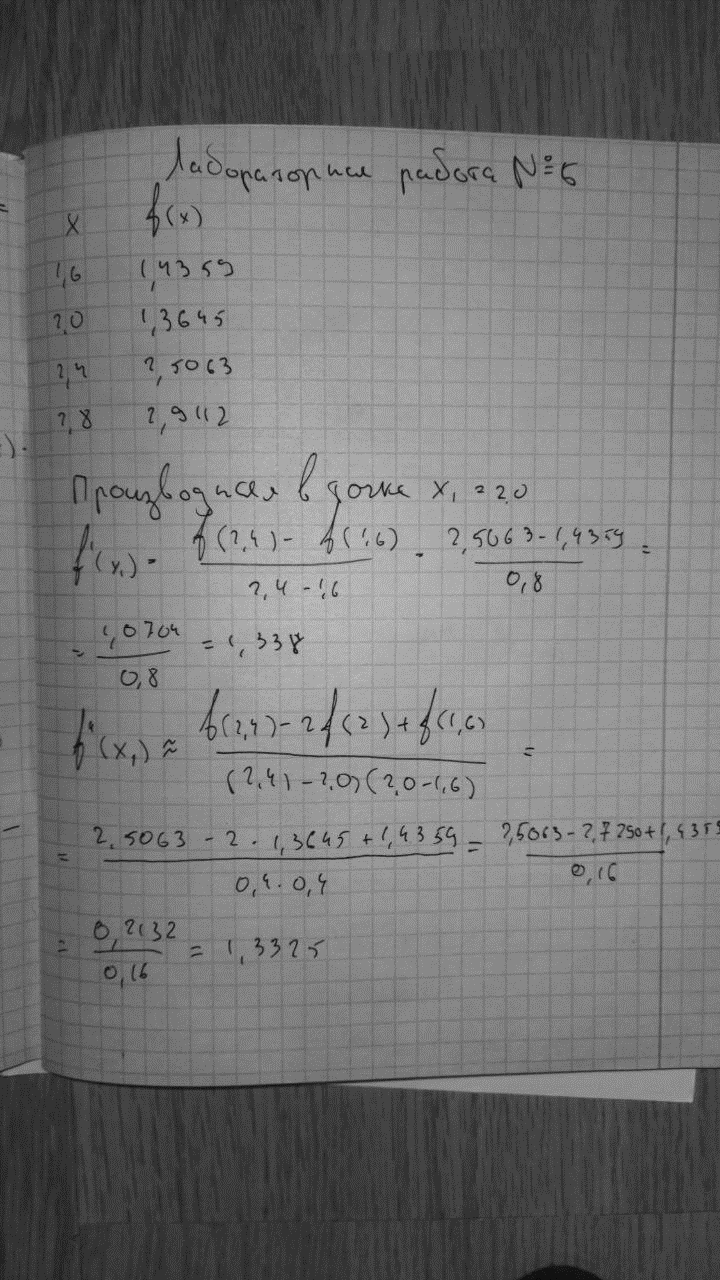 Лабораторная работа №6
x f(x)
1,6 1,4359
2,0 1,3645
2,4 2,5063
2,8 2,9112
Производная в точке x₁ = 2,0
f'(x₁) = f(2,4) - f(1,6) / 2,4 - 1,6 = 2,5063 - 1,4359 / 0,8 =
= 1,0704 / 0,8 = 1,338
f''(x₁) ≈ f(2,4) - 2f(2) + f(1,6) / (2,4) - 2,0)(2,0 - 1,6) =
= 2,5063 - 2 · 1,3645 + 1,4359 / 0,4 · 0,4 = 2,5063 - 2,7290 + 1,4359 / 0,16
= 0,2132 / 0,16 = 1,3325